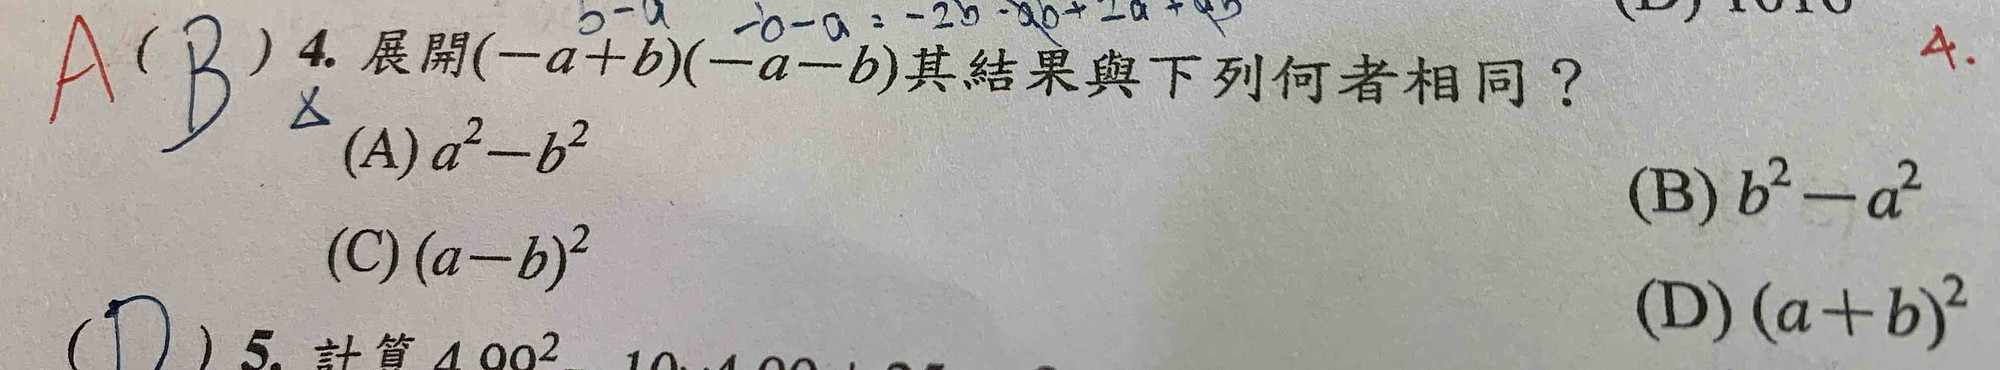 b-a -b-a = -2b-ab+2a+ab
A (B) 4. 展開(−a+b)(−a−b)其結果與下列何者相同？ 4.
(A) a²−b²
(B) b²−a²
(C) (a−b)²
(D) (a+b)²
(D) 5. 計算